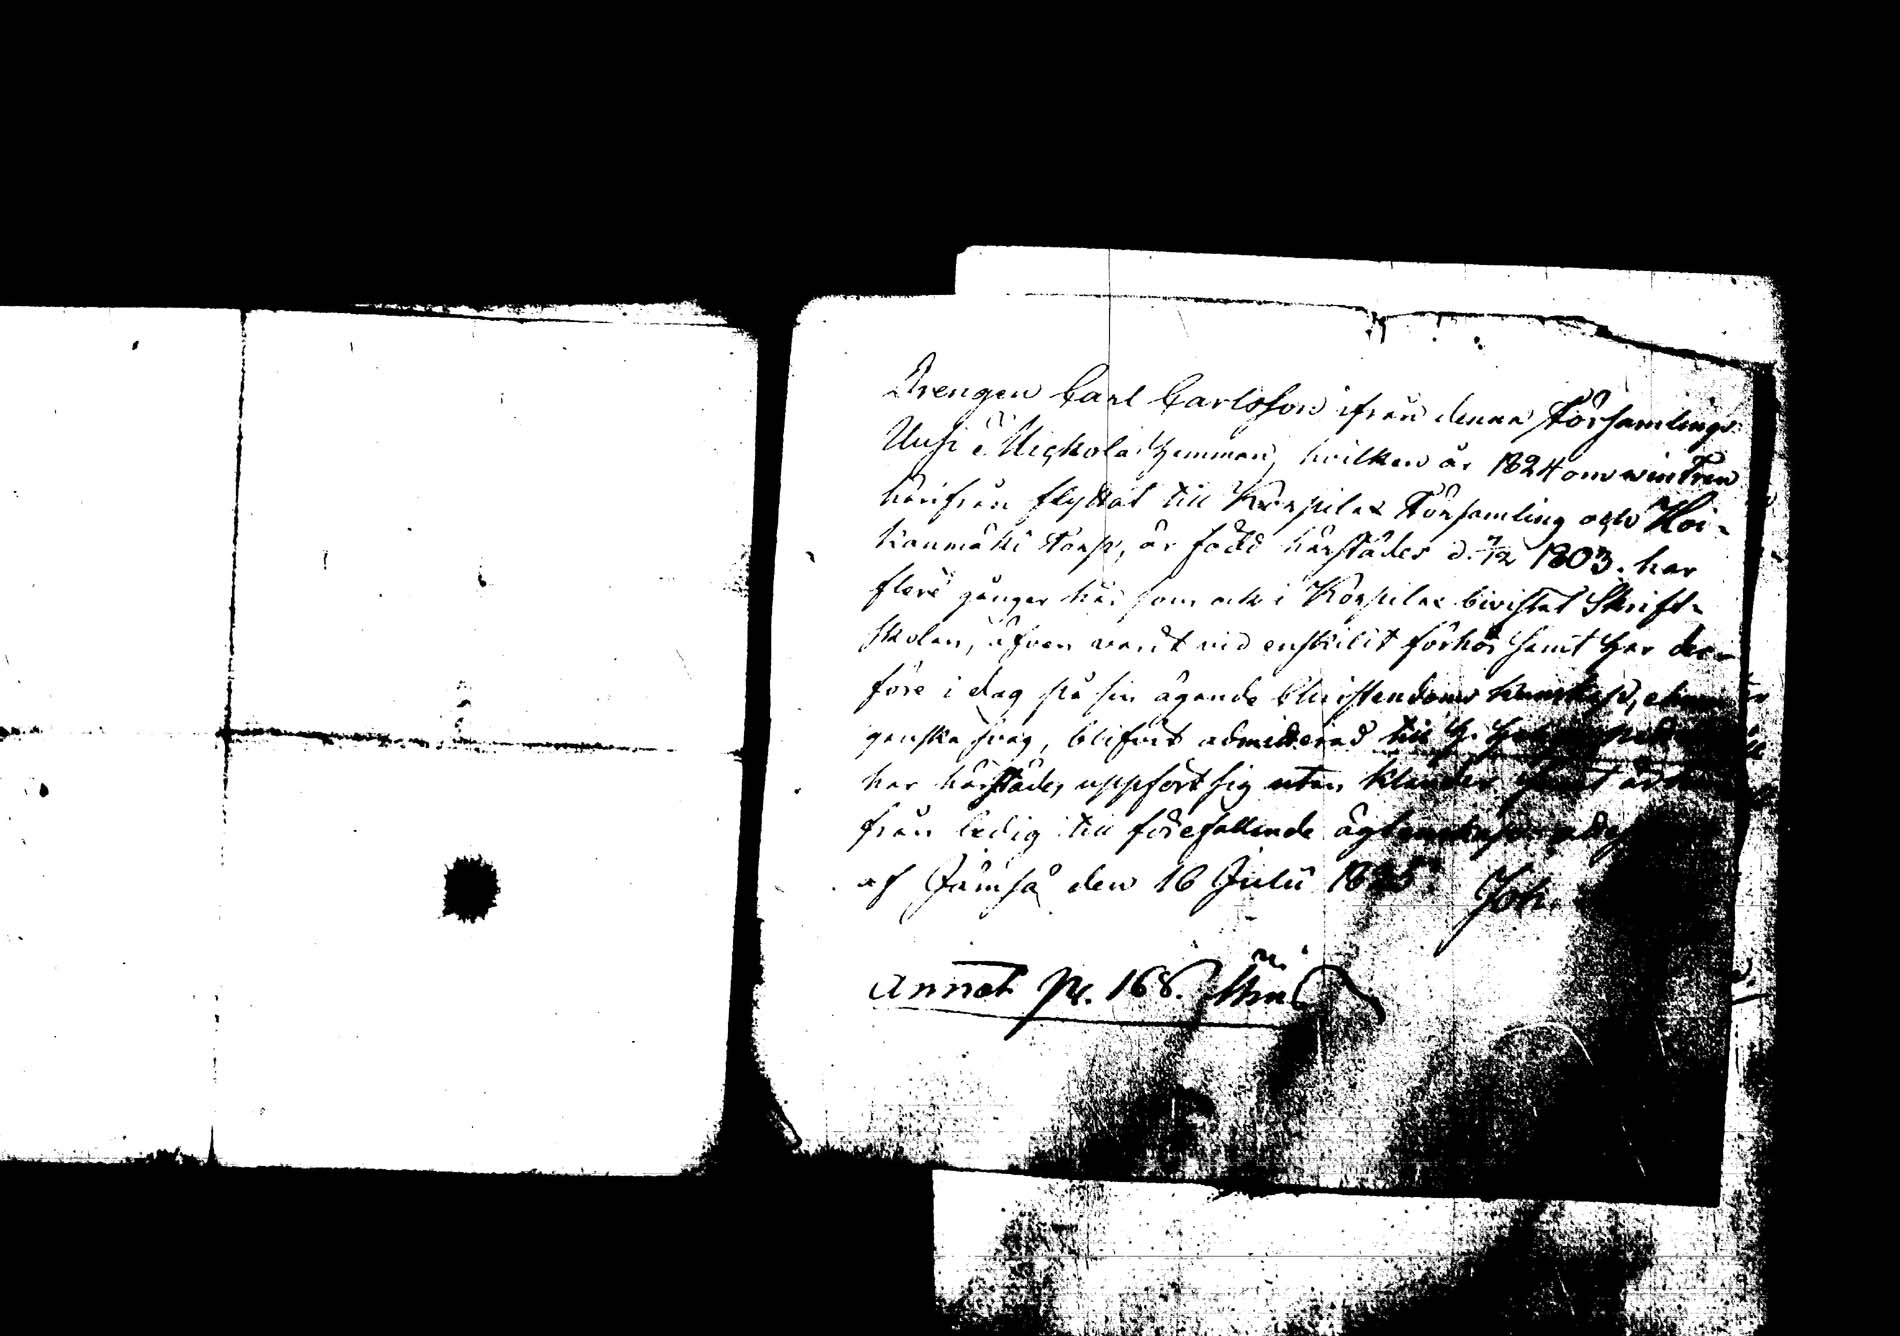 Drengen Carl Carlsson ifrån denna Församlings
Uusi Mickola Hemman, hvilken år 1824 om wintren
härifrån flyttat till Korpilax Församling och Koi-
kanmäki Torp, är född härstädes d. 7/12 1803. har
flere gånger här som och i Korpilax bivistat Skrift-
skolan, äfven varit vid enskilit förhör samt har der-
före i dag på sin ägande Christendoms kunskap,
ganska svag, blifvit admitterad till H.
har härstädes uppfört sig utan klander samt är
från ledig till förefallande ägtenskap
af Jämsä den 16 Julii 1825. Joh.
annot p. 168.